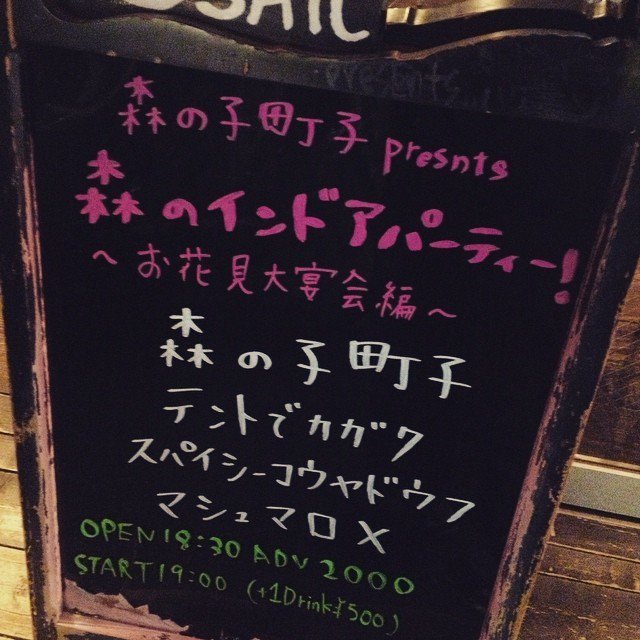 森の子町子 presnts
森のインドアパーティー!
～お花見大宴会編～
森の子町子
テントでカガク
スパイシーコウヤドウフ
マシュマロ×
OPEN18:30 ADV 2000
START19:00 (+1Drink¥500)